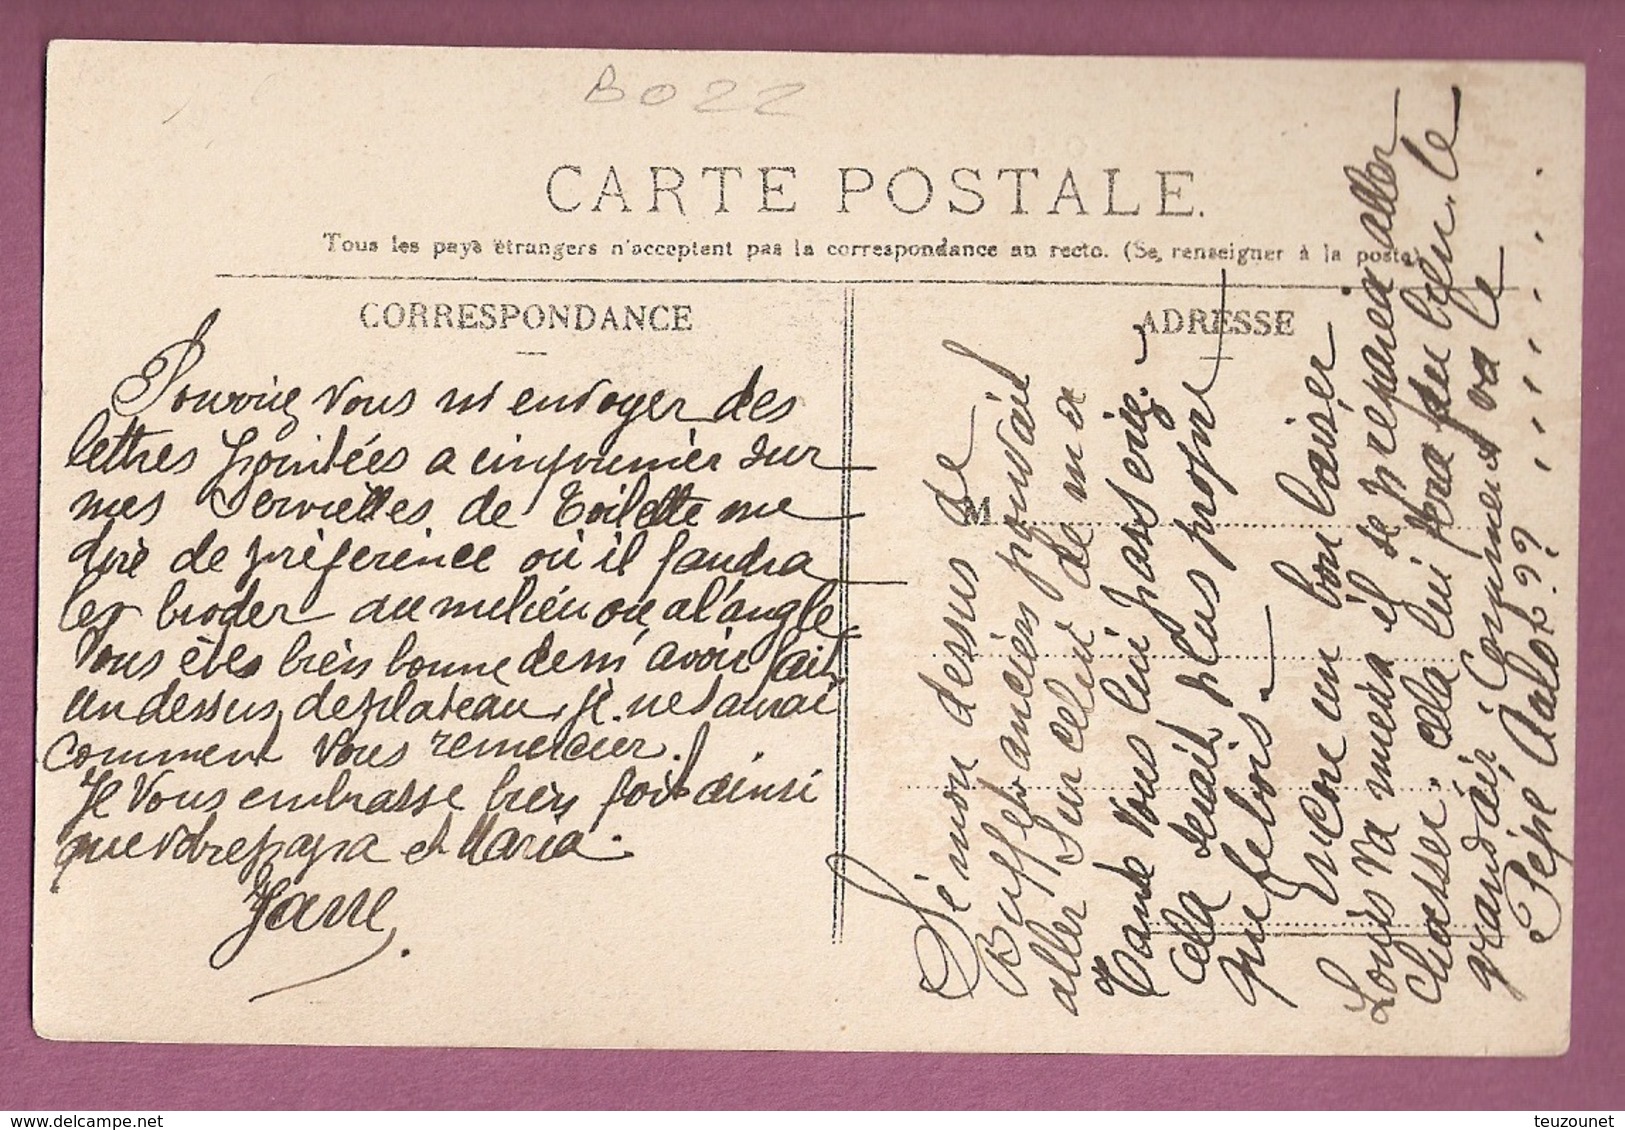 B022
CARTE POSTALE.
Tous les pays étrangers n'acceptent pas la correspondance au recto. (Se renseigner à la poste)
CORRESPONDANCE
ADRESSE
M
Pouvriez vous m'envoyer des
lettres pointées a emprimèr sur
mes Serviettes de Toilette me
dire de préférence où il faudra
les broder au milieu ou a l'angle
Vous êtes bien bonne de m'avoir fait
un dessus de plateau, je ne saurai
comment vous remercier.
Je Vous embrasse bien fort ainsi
que votre papa et Maria.
Jane
Si mon dessus de
Buffet ancien pouvait
aller sur celui de ma
Tante vous lui passeriez.
cela serait plus propre
que le bois.
Encore un bon baiser
Louis va mieux il se prepare a aller
chasser. cela lui fera du bien. le
grand air. Comment va le
Pépé ???.......
www.delcampe.net
teuzounet